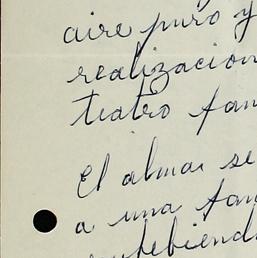 aire puro y
realizacion
teatro fan
El alma se
a una fan